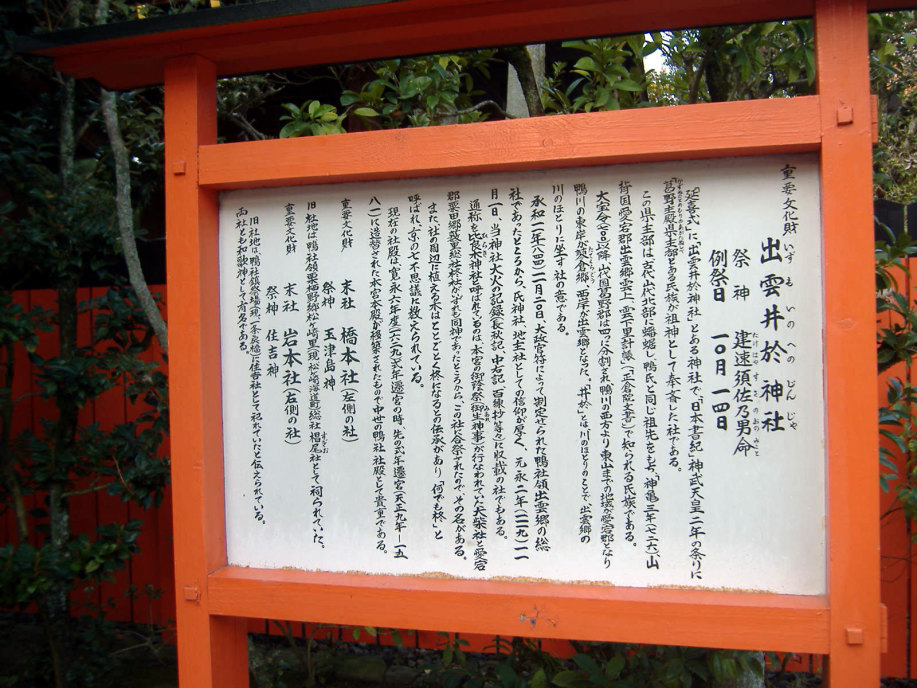 重要文化財 出雲井於神社
いずもいのへのじんじゃ
祭神 建速須佐乃男命
たけはやすさのおのみこと
例祭日 一〇月一四日
『延喜式』に「出雲井於神社」とある神社で、『日本書紀』神武天皇二年の条りに
「葛野主殿県主部」とある氏族が祖神として奉斎した社である。
この県主部は古代山代北部に蟠踞し、鴨氏と同じ祖先をもち、「神亀三年(七二六)山
背国愛宕郡出雲郷雲上里・雲下里計帳」(『正倉院文書』)で知られる氏族である。
大宝令(七〇一)念降、山代国葛野郡は四つに分割され鴨川の西方より東山までの地域が愛宕郡となり
鴨川の東岸が蓼倉郷、西岸が出雲郷となった。「井於」とは川のほとりのことで、出雲郷の
川のほとりに坐す社の意である。
永和一一年(八四四)一二月二〇日、大政官符によって割定せられた鴨社領出雲郷の総
社であったところから、氏神社、地主社としての信仰が厚く、元永二年(一一一九)一一
月一一日、当神社火災の記録(『長秋記』『中右記』『百練抄』等々)に収載の社でもある。
通称を「比良木神社」と呼ばれているのは、本宮の御蔭祭(御生神事)が行なわれていた柴社と愛宕
郡栗田郷藪里総社柊社がいずれも同神であったところから、この社へ合祭されたので、その名がある。
また、社の周辺に植える木はことごとく柊になるとの伝承があり、「何でも柊」と
呼ばれ、京の七不思議に数えられている。
現在の社殿は、寛永六年度(一六二九)式年遷宮の時、先の式年遷宮(天正九年―一五
八一)に造替された本宮本殿が移築されたもので中世の鴨社社殿として貴重である。
重要文化財 末社 橋本社(左側の社)
祭神 玉津島神
旧社地は、鴨社領栗栖野郷松ヶ崎里(現松ヶ崎海道町)総社椙尾社として祠られていた。
重要文化財 末社 岩本社(左側の社)
祭神 住吉神
旧社地は、鴨社領祭場(現一条良橋)に住吉社として祀られていたと伝えられている。
両社とも和歌神として有名である。